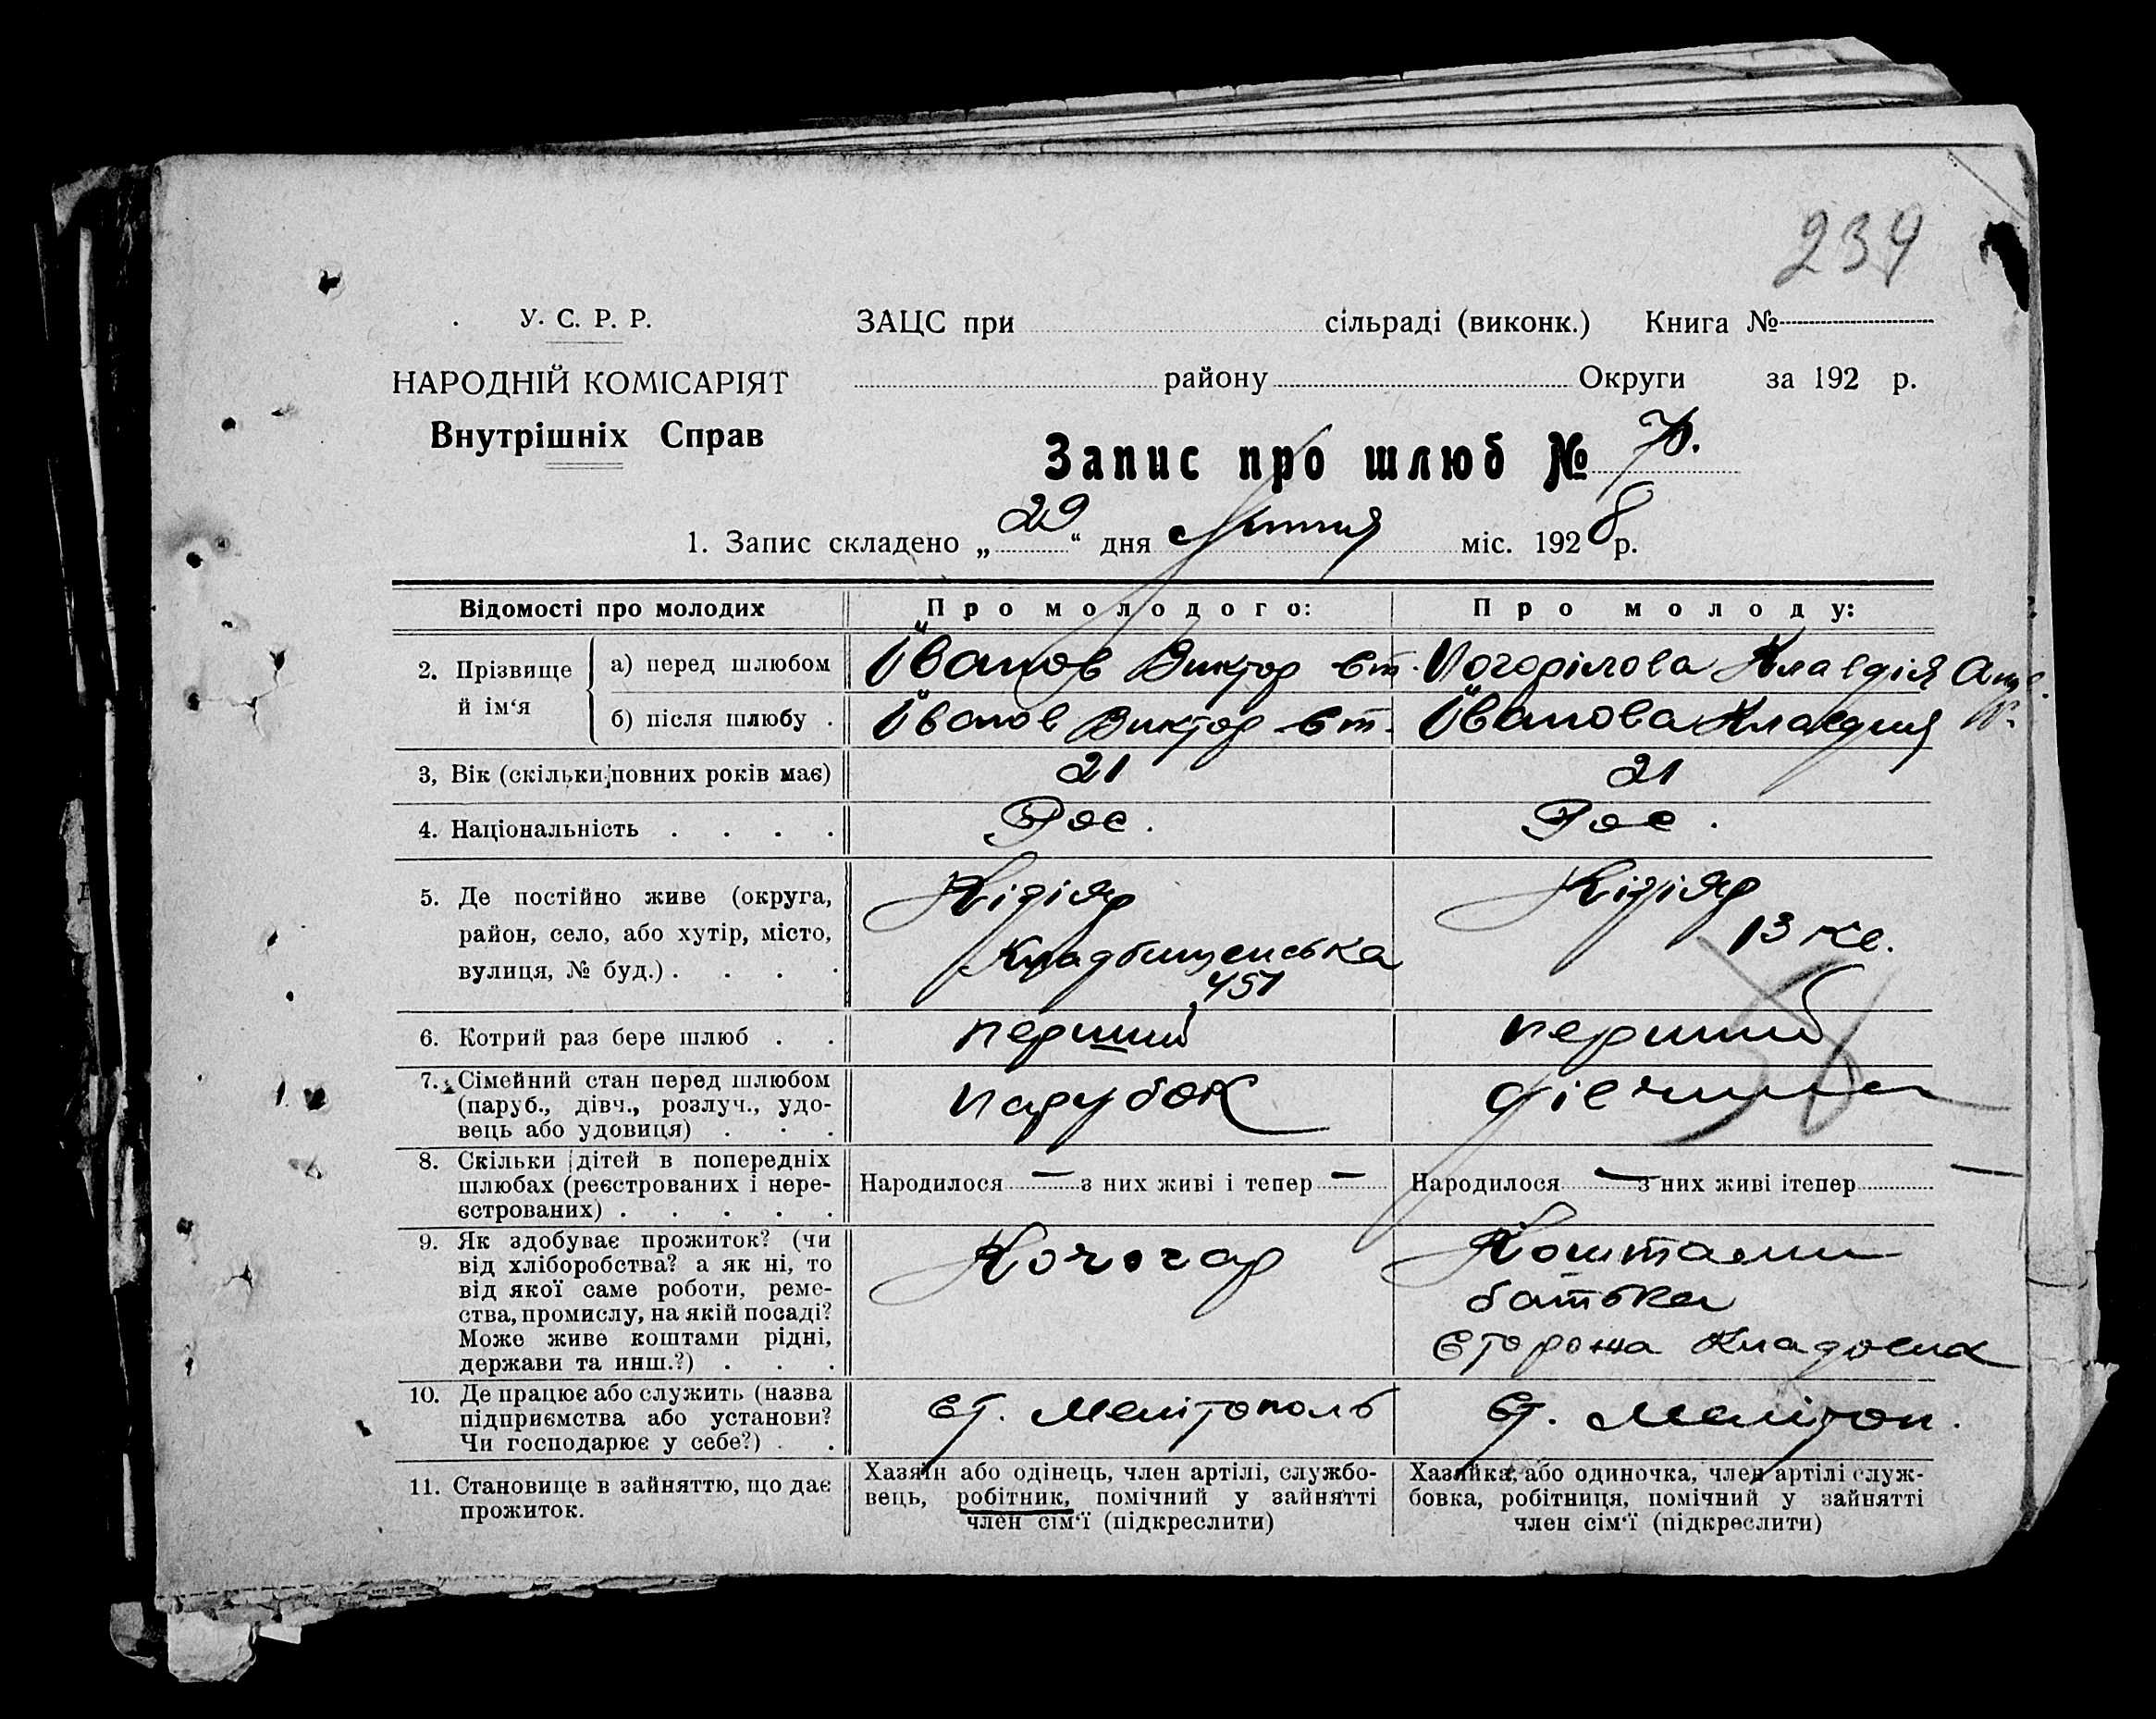 234
У. С. Р. Р.
НАРОДНІЙ КОМІСАРІЯТ
Внутрішніх Справ
ЗАЦС при сільраді (виконк.) Книга №
району Округи за 192 р.
Запис про шлюб № 70.
1. Запис складено „29“ дня Липня міс. 1928 р.
Відомості про молодих Про молодого: Про молоду:
2. Прізвище й ім‘я
а) перед шлюбом Іванов Виктор Єт. Погорілова Клавдія
б) після шлюбу . Іванов Виктор Єт. Іванова Клавдия
3, Вік (скільки повних років має) 21 21
4. Національність . . . . Рос. Рос.
5. Де постійно живе (округа,
район, село, або хутір, місто,
вулиця, № буд.) . . . .
Кізіяр
Кладбищенська
451
Кізіяр
13 кв.
6. Котрий раз бере шлюб . . перший перший
7. Сімейний стан перед шлюбом
(паруб., дівч., розлуч., удо-
вець або удовиця) . . .
парубок дівчина
8. Скільки дітей в попередніх
шлюбах (реєстрованих і нере-
єстрованих) . . . . .
Народилося — з них живі і тепер —
Народилося — з них живі ітепер
9. Як здобуває прожиток? (чи
від хліборобства? а як ні, то
від якої саме роботи, реме-
ства, промислу, на якій посаді?
Може живе коштами рідні,
держави та инш.?) . . .
Кочегар
Коштами
батька
Сторожа
10. Де працює або служить (назва
підприємства або установи?
Чи господарює у себе?) . .
Ст. Мелітополь
Ст. Мелітоп.
11. Становище в зайняттю, що дає
прожиток.
Хазяїн або одінець, член артілі, службо-
вець, робітник, помічний у зайнятті
член сім‘ї (підкреслити)
Хазяйка, або одиночка, член артілі служ-
бовка, робітниця, помічний у зайнятті
член сім‘ї (підкреслити)